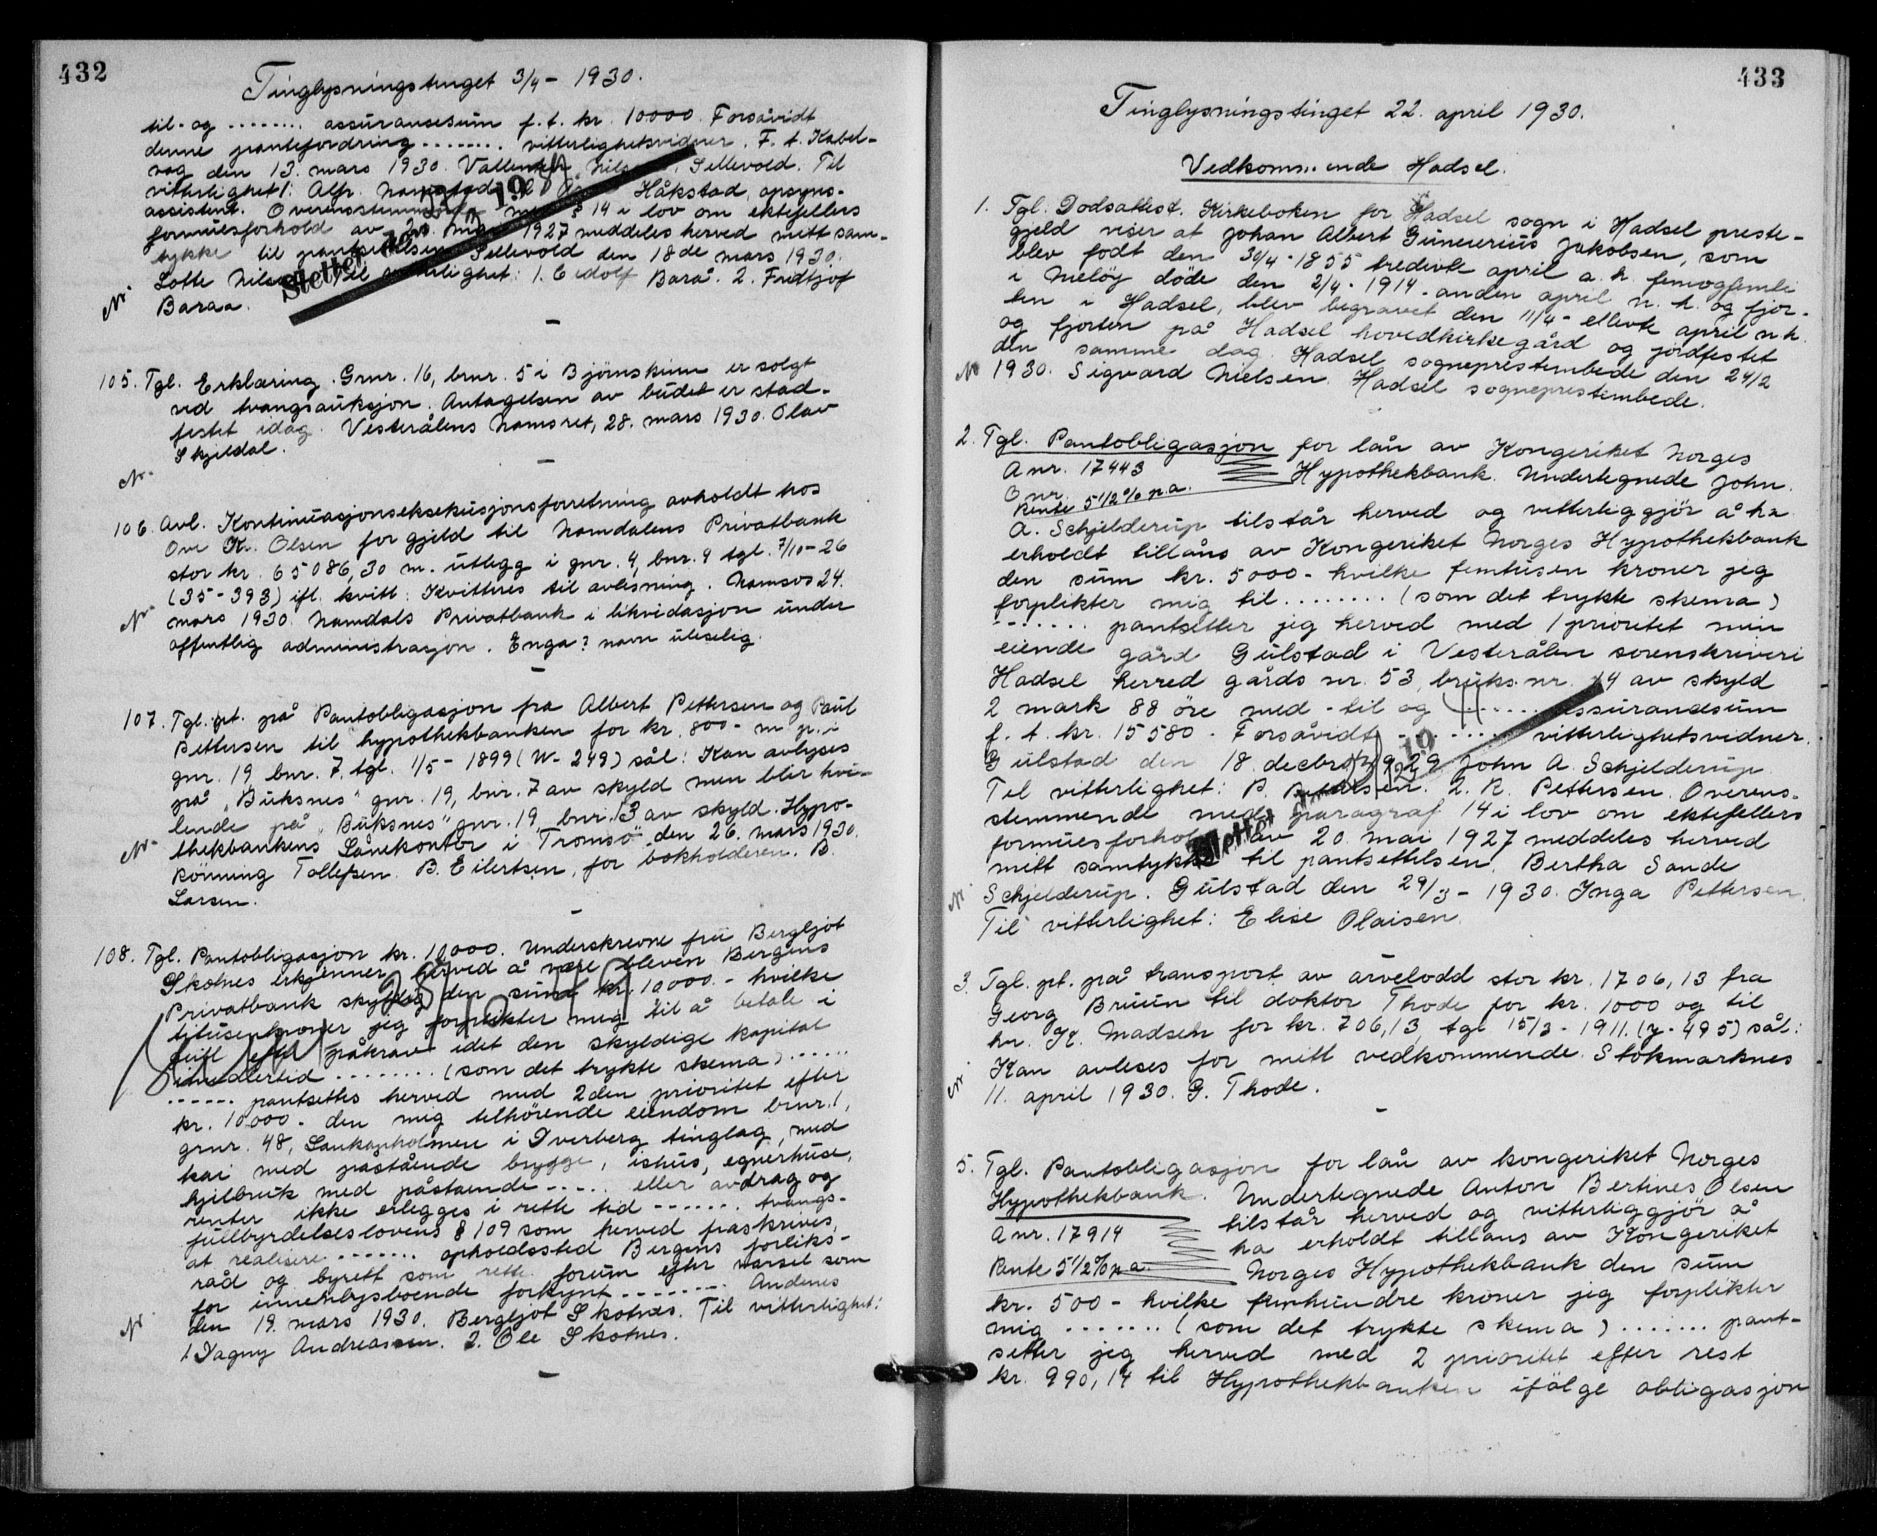 432
Tinglysningstinget 3/4 - 1930.
til- og ........ assuransesum f.t. kr. 10000. Forsåvidt
denne pantefordring ........ vitterlighetsvidner. F. t. Kabel-
våg den 13. mars 1930. Nilsen, Sellevold. Til
vitterlighet: Alfr. Håkstad, opsyns-
assistent. Overensstemmende med § 14 i lov om ektefellers
formuesforhold av 20. mai 1927 meddeles herved mitt sam-
tykke til pantsettelsen. Sellevold den 18de mars 1930.
Lotte Nilsen. Til vitterlighet: 1. Eidolf Barå. 2. Fridtjof
Baraa.
Slettet 19
105. Tgl. Erklæring. Grnr. 16, brnr. 5 i Bjørnskinn er solgt
ved tvangsauksjon. Antagelsen av budet er stad-
festet idag. Vesterålens Namsret, 28. mars 1930. Olav
Skjeldal.
106. Avl. Kontinuasjonseksekusjonsforretning avholdt hos
Ove Kr. Olsen for gjeld til Namdalens Privatbank
stor kr. 65086,30 m. utlegg i gnr. 4, bnr. 9 tgl. 7/10-26
(35-393) ifl. kvitt: Kvitteres til avlesning. Namsos 24.
mars 1930. Namdals Privatbank i likvidasjon under
offentlig administrasjon. Enga? navn uleselig.
107. Tgl. pt. på Pantobligasjon fra Albert Pettersen og Paul
Pettersen til hypothekbanken for kr. 800- m. p. i
gnr. 19, bnr. 7, tgl. 1/5 - 1899 (W-249) sål: Kan avlyses
på "Buksnes" gnr. 19, bnr. 7 av skyld men blir hvi-
lende på "Buksnes" gnr. 19 bnr. 13 av skyld. Hypo-
thekbankens Lånekontor i Tromsø den 26. mars 1930.
Rönning Tollefsen. B. Eilertsen, for bokholderen. B.
Larsen.
108. Tgl. Pantobligasjon kr. 10000. Underskrevne frú Bergljot
Skotnes erkjenner herved å være bleven Bergens
Privatbank skyldig den sum kr. 10000.- hvilke
titusenkroner jeg forplikter mig til å betale i
påkrav idet den skyldige kapital
imidlertid ........ (som det trykte skema) ......
...... pantsettes herved med 2den prioritet efter
kr. 10000.- den mig tilhörende eiendom brnr. 1,
grnr. 48, i Dverberg tinglag, med
kai med påstående brygge, ishus, egnerhuse,
hjelbruk med påstaende ..... eller avdrag og
renter ikke erlegges i rette tid ....... tvangs-
fullbyrdelseslovens § 109 som herved fraskrives,
at realisere ....... opholdssted Bergens forliks-
råd og byrett som rette forum efter varsel som
for innenbysboende forkynt ....... Andenes
den 19. mars 1930. Bergljot Skotnes. Til vitterlighet:
1. Dagny Andreassen. 2. Ole Skotnes.
433
Tinglysningstinget 22. april 1930.
Vedkommende Hadsel.
1. Tgl. Dodsattest. Kirkeboken for Hadsel sogn i Hadsel preste-
gjeld viser at Johan Albert Gunerius Jakobsen, som
blev født den 30/4 - 1855 tredevte april a. h. femogfemti
i Meløy døde den 2/4 - 1914 - anden april n. h. og fjor-
ten i Hadsel, blev begravet den 11/4 - ellevte april n. h.
og fjorten på Hadsel hovedkirkegård og jordfestet
den samme dag. Hadsel sogneprestembede den 24/2
1930. Sigvard Nielsen. Hadsel sogneprestembede.
2. Tgl. Pantobligasjon for lån av Kongeriket Norges
A nr. 17443 Hypothekbank. Undertegnede John
O nr.
Rente 5 1/2 % p.a.
A. Schjelderup tilstår herved og vitterliggjör å ha
erholdt tillåns av Kongeriket Norges Hypothekbank
den sum kr. 5000- hvilke femtusen kroner jeg
forplikter mig til ........ (som det trykte skema)
....... pantsetter jeg herved med 1 prioritet min
eiende gård Gulstad i Vesterålen sorenskriveri
Hadsel herred gårds nr. 53, bruks nr. 14 av skyld
2 mark 88 öre med - til og ....... assuransesum
f. t. kr. 15580. Forsåvidt ........ vitterlighetsvidner.
Gulstad den 18. decbr. 1929 John A. Schjelderup
Til vitterlighet: P. 2. R. Pettersen. Overens-
stemmende med paragraf 14 i lov om ektefellers
formuesforhold av 20. mai 1927 meddeles herved
mitt samtykke til pantsettelsen. Bertha Sande
Schjelderup. Gulstad den 29/3 - 1930. Inga Pettersen.
Til vitterlighet: Elise Olaisen
Slettet 19
3. Tgl. pt. på transport av arvelodd stor kr. 1706,13 fra
Georg Bruun til doktor Thode for kr. 1000 og til
hr. Madsen for kr. 706,13, tgl. 15/3 - 1911. (y-495) sål:
Kan avleses for mitt vedkommende. Stokmarknes
11. april 1930. G. Thode.
5. Tgl. Pantobligasjon for lån av kongeriket Norges
Hypothekbank. Undertegnede Anton Bertines Olsen
tilstår herved og vitterliggjör å
A nr. 17914 ha erholdt tillåns av Kongeriket
Rente 5 1/2 % p.a. Norges Hypothekbank den sum
kr. 500 - hvilke femhundre kroner jeg forplikter
mig ....... (som det trykte skema) ....... pant-
setter jeg herved med 2 prioritet efter rest
kr. 990,14 til Hypothekbanken ifölge obligasjon